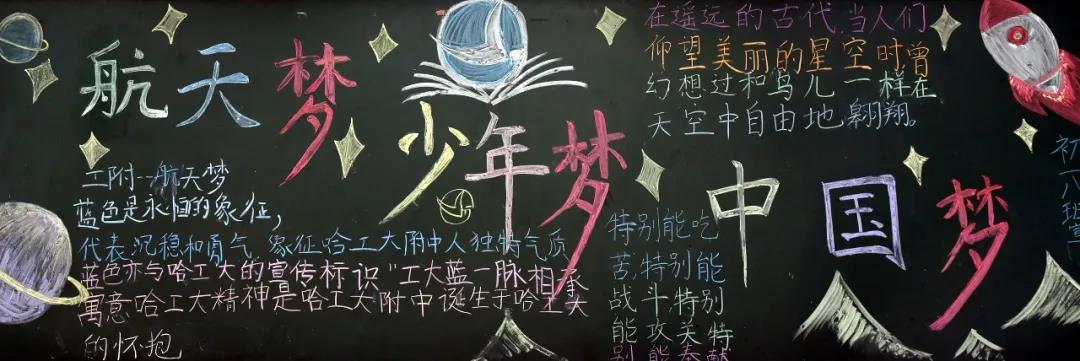 航天梦
少年梦
中国梦
工附--航天梦
蓝色是永恒的象征，
代表沉稳和勇气 象征哈工大附中人独特气质
蓝色亦与哈工大的宣传标识"工大蓝一脉相承
寓意哈工大精神是哈工大附中诞生于哈工大
的怀抱
在遥远的古代当人们
仰望美丽的星空时曾
幻想过和鸟儿一样在
天空中自由地翱翔。
特别能吃
苦,特别能
战斗,特别
能攻关特
别能奉献
初一八班宣